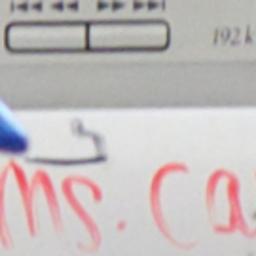 192 k
Ms. Ca